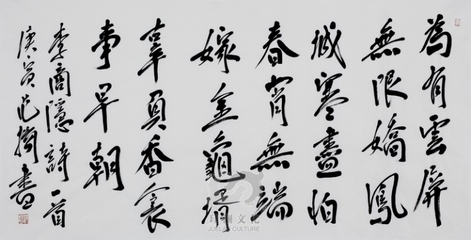 為有雲屏
無限嬌鳳
城寒盡怕
春宵無端
嫁金龜婿
辜負香衾
事早朝
李商隱詩一首
庚寅書
文化
CULTURE